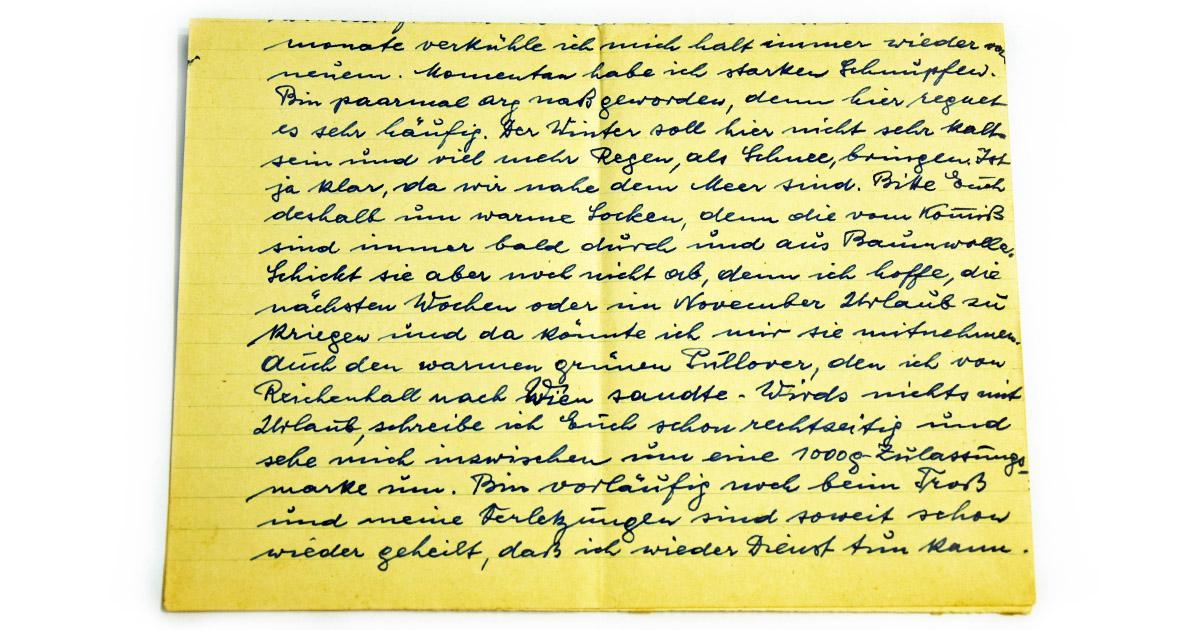 monate verkühle ich mich halt immer wieder von
neuem. Momentan habe ich starken Schnupfen.
Bin paarmal arg naß geworden, denn hier regnet
es sehr häufig. Der Winter soll hier nicht sehr kalt
sein und viel mehr Regen, als Schnee, bringen. Ist
ja klar, da wir nahe dem Meer sind. Bitte Euch
deshalb um warme Socken, denn die vom Kom̄iß
sind immer bald durch und aus Baumwolle.
Schickt sie aber noch nicht ab, denn ich hoffe, die
nächsten Wochen oder im November Urlaub zu
kriegen und da könnte ich mir sie mitnehmen.
Auch den warmen grünen Pullover, den ich von
Reichenhall nach Wien sandte. Wirds nichts mit
Urlaub, schreibe ich Euch schon rechtzeitig und
sehe mich inzwischen um eine 1000g-Zulassungs-
marke um. Bin vorläufig noch beim Troß
und meine Verletzungen sind soweit schon
wieder geheilt, daß ich wieder Dienst tun kann.